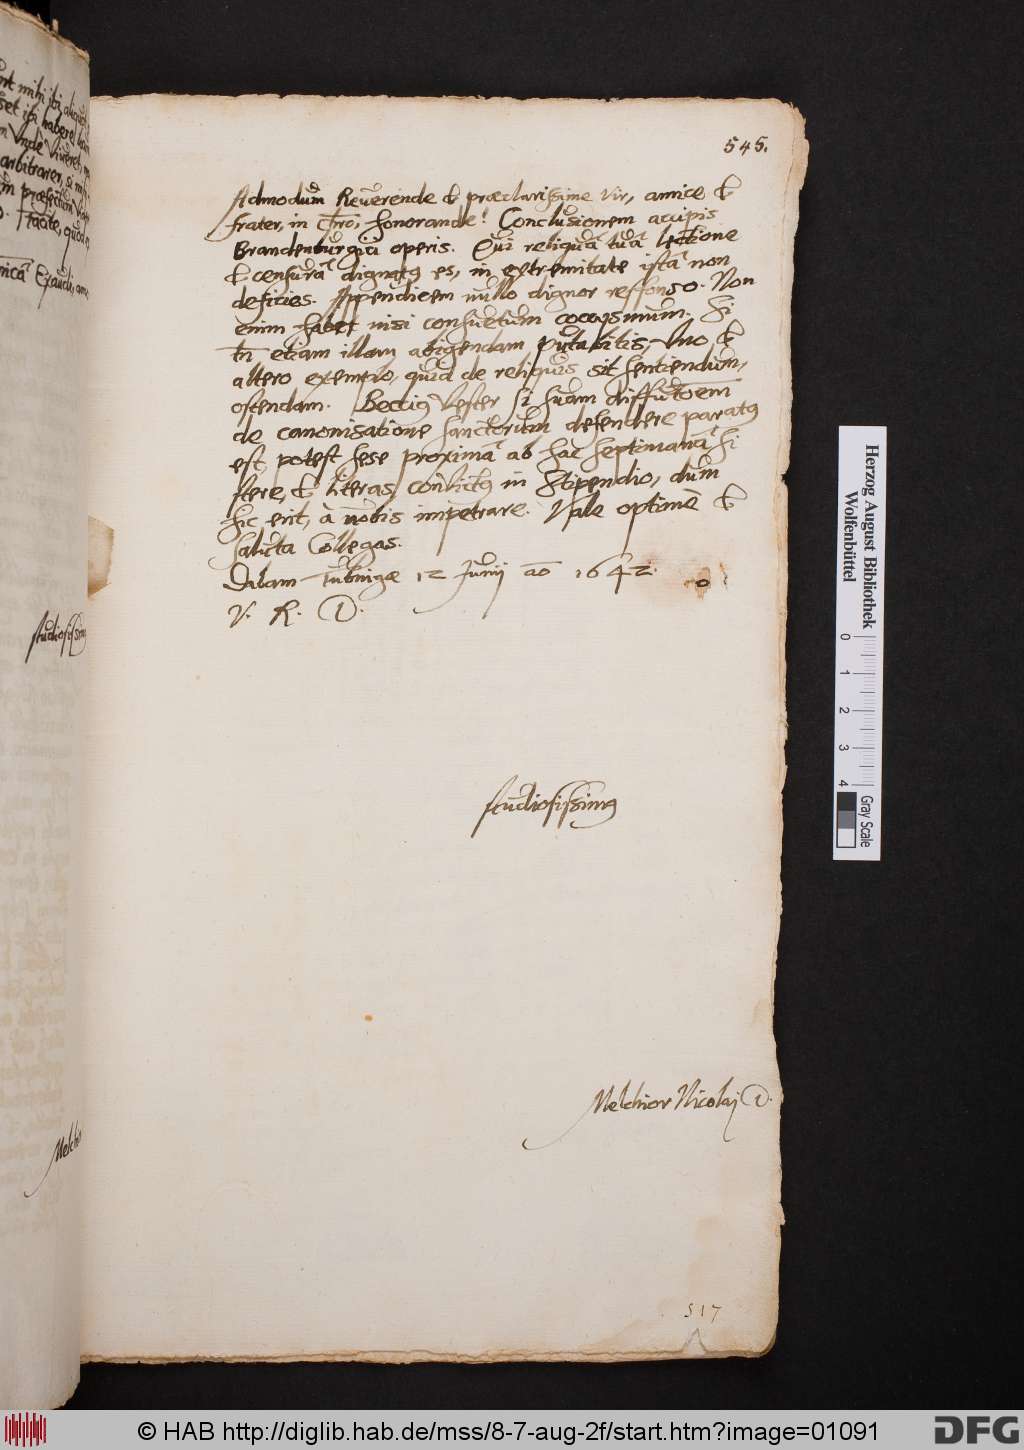 545.
Admodum Reverende & præclarissime Vir, amice &
frater, in Chro, honorande! Conclusionem accipis
Brandenburgici operis. Qui reliquā tuā lectione
& censurā dignatus es, in extremitate istā non
deficies. Appendicem nullo dignor responso. Non
enim habet nisi consuetum coccysmum. Si
tn etiam illam abigendam putabitis, Uno, &
altero exemplo, quid de reliquis sit sentiendum,
ostendam. Vester si suam
de canonisatione sanctorum defendere paratus
est, potest sese proximā ab hac septimanā si
stere, & literas, conlictus in Stipendio, dum
hic erit, à nobis impetrare. Vale optimè &
saluta Collegas.
Dabam Tubingæ 12 Junij ao 1642.
V. R. D.
studiosissimus
Melchior Nicolaj D.
517
studiosissimus
Herzog August Bibliothek
Wolfenbüttel
0 1 2 3 4
Gray Scale
© HAB http://diglib.hab.de/mss/8-7-aug-2f/start.htm?image=01091
DFG